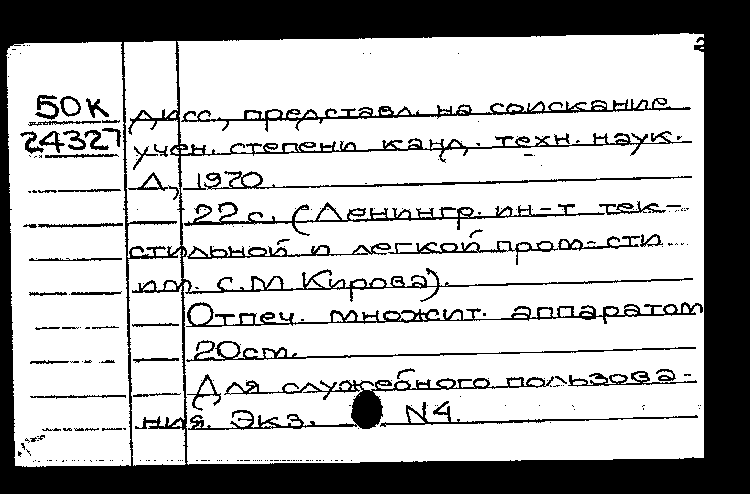 2
50К дисс., представл. на соискание
24327 учен. степени канд. техн. наук.
Л, 1970.
22 с. (Ленингр. ин-т тек-
стильной и легкой пром-сти
им. С.М Кирова).
Отпеч. множит. аппаратом
20см.
Для служебного пользова-
ния. Экз. N4.